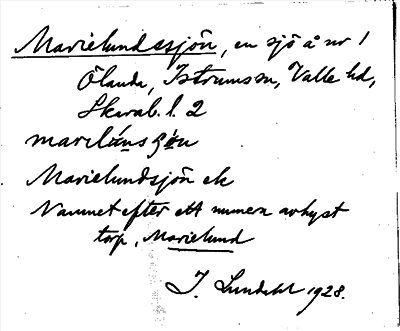 Marielundssjön, en sjö å nr 1
Ölanda, Istrums sn, Valle hd,
Skarab. l. 2
marilúnsʃön
Marielundsjön ek
Namnet efter ett numera avhyst
torp, Marielund
J. Lundahl 1928.